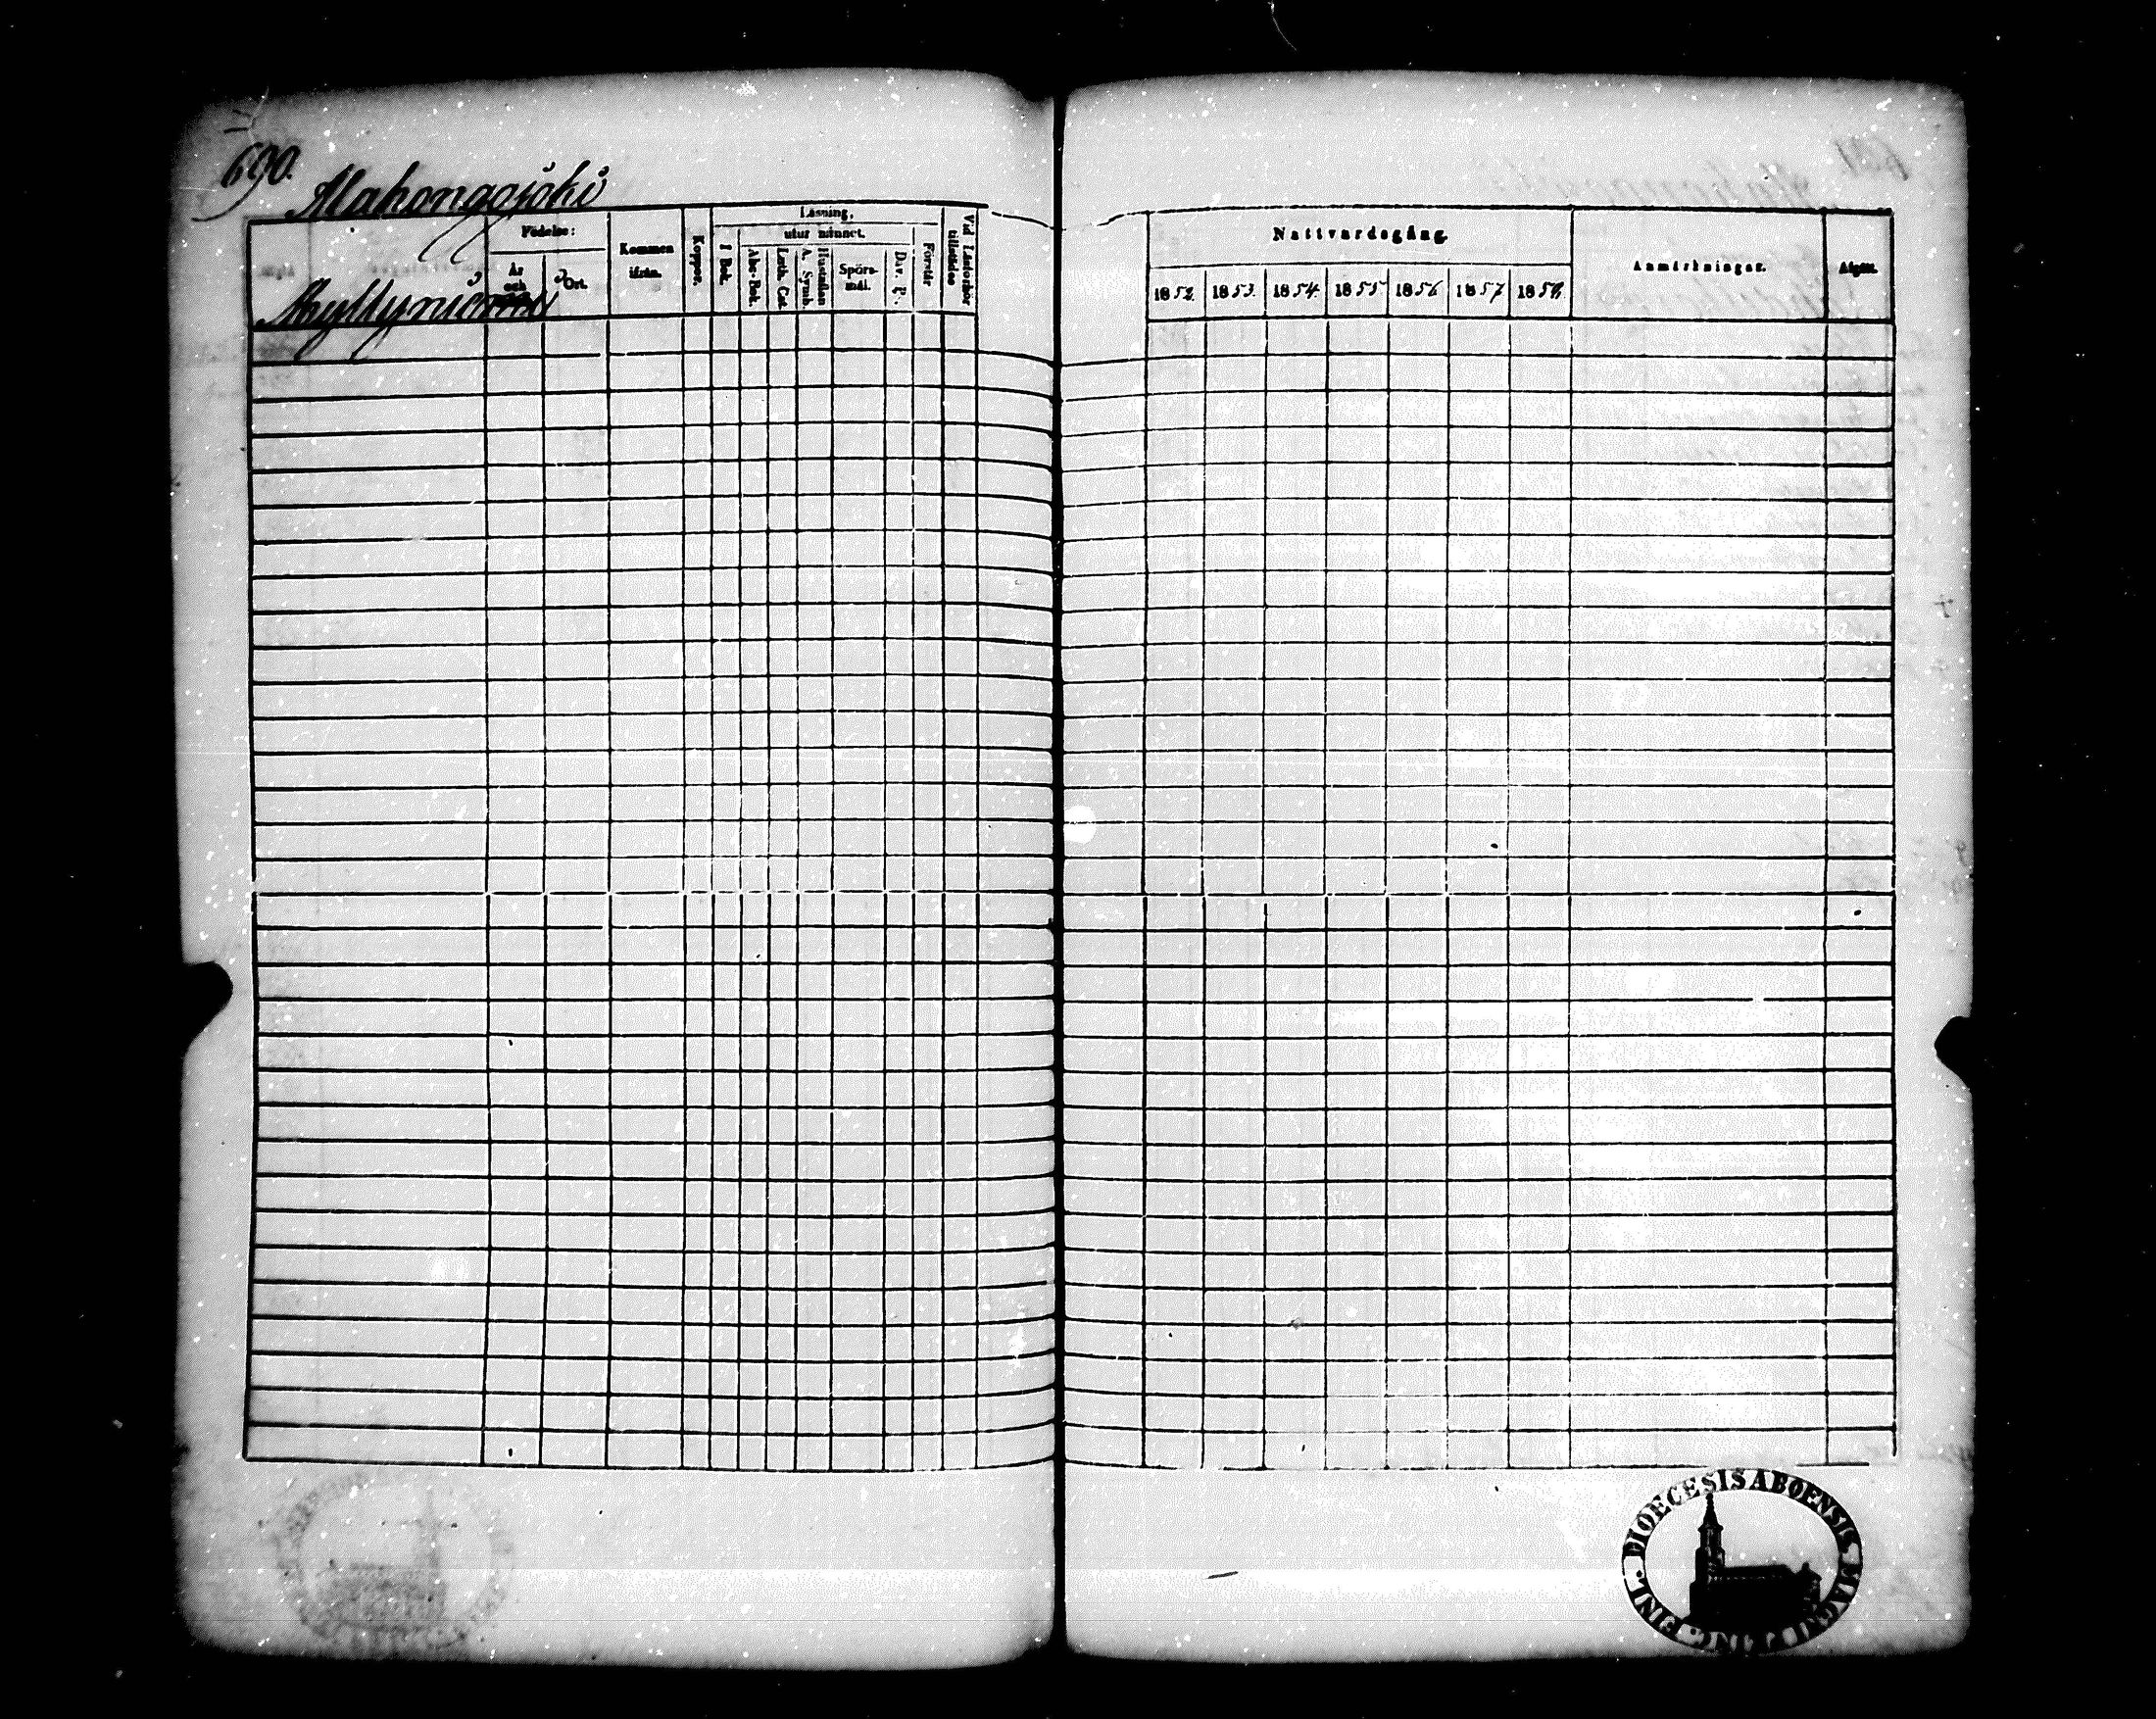 690.
Mahongojoki
Födelse:
År och
Ort.
Kommen ifrån.
Koppor.
Läsning,
utur minnet.
I Bok.
Abc-Bok.
Luth. Cat.
A. Symb.
Hustaflan
Spörs-mål.
Dav. P.
Förstår
Vid Läseförhör tillstädes
Nattvardsgång.
1852. 1853. 1854. 1855. 1856. 1857. 1858.
Anmärkningar.
Afgått.
DIOECESIS ABOENSIS MAGNI FINL.